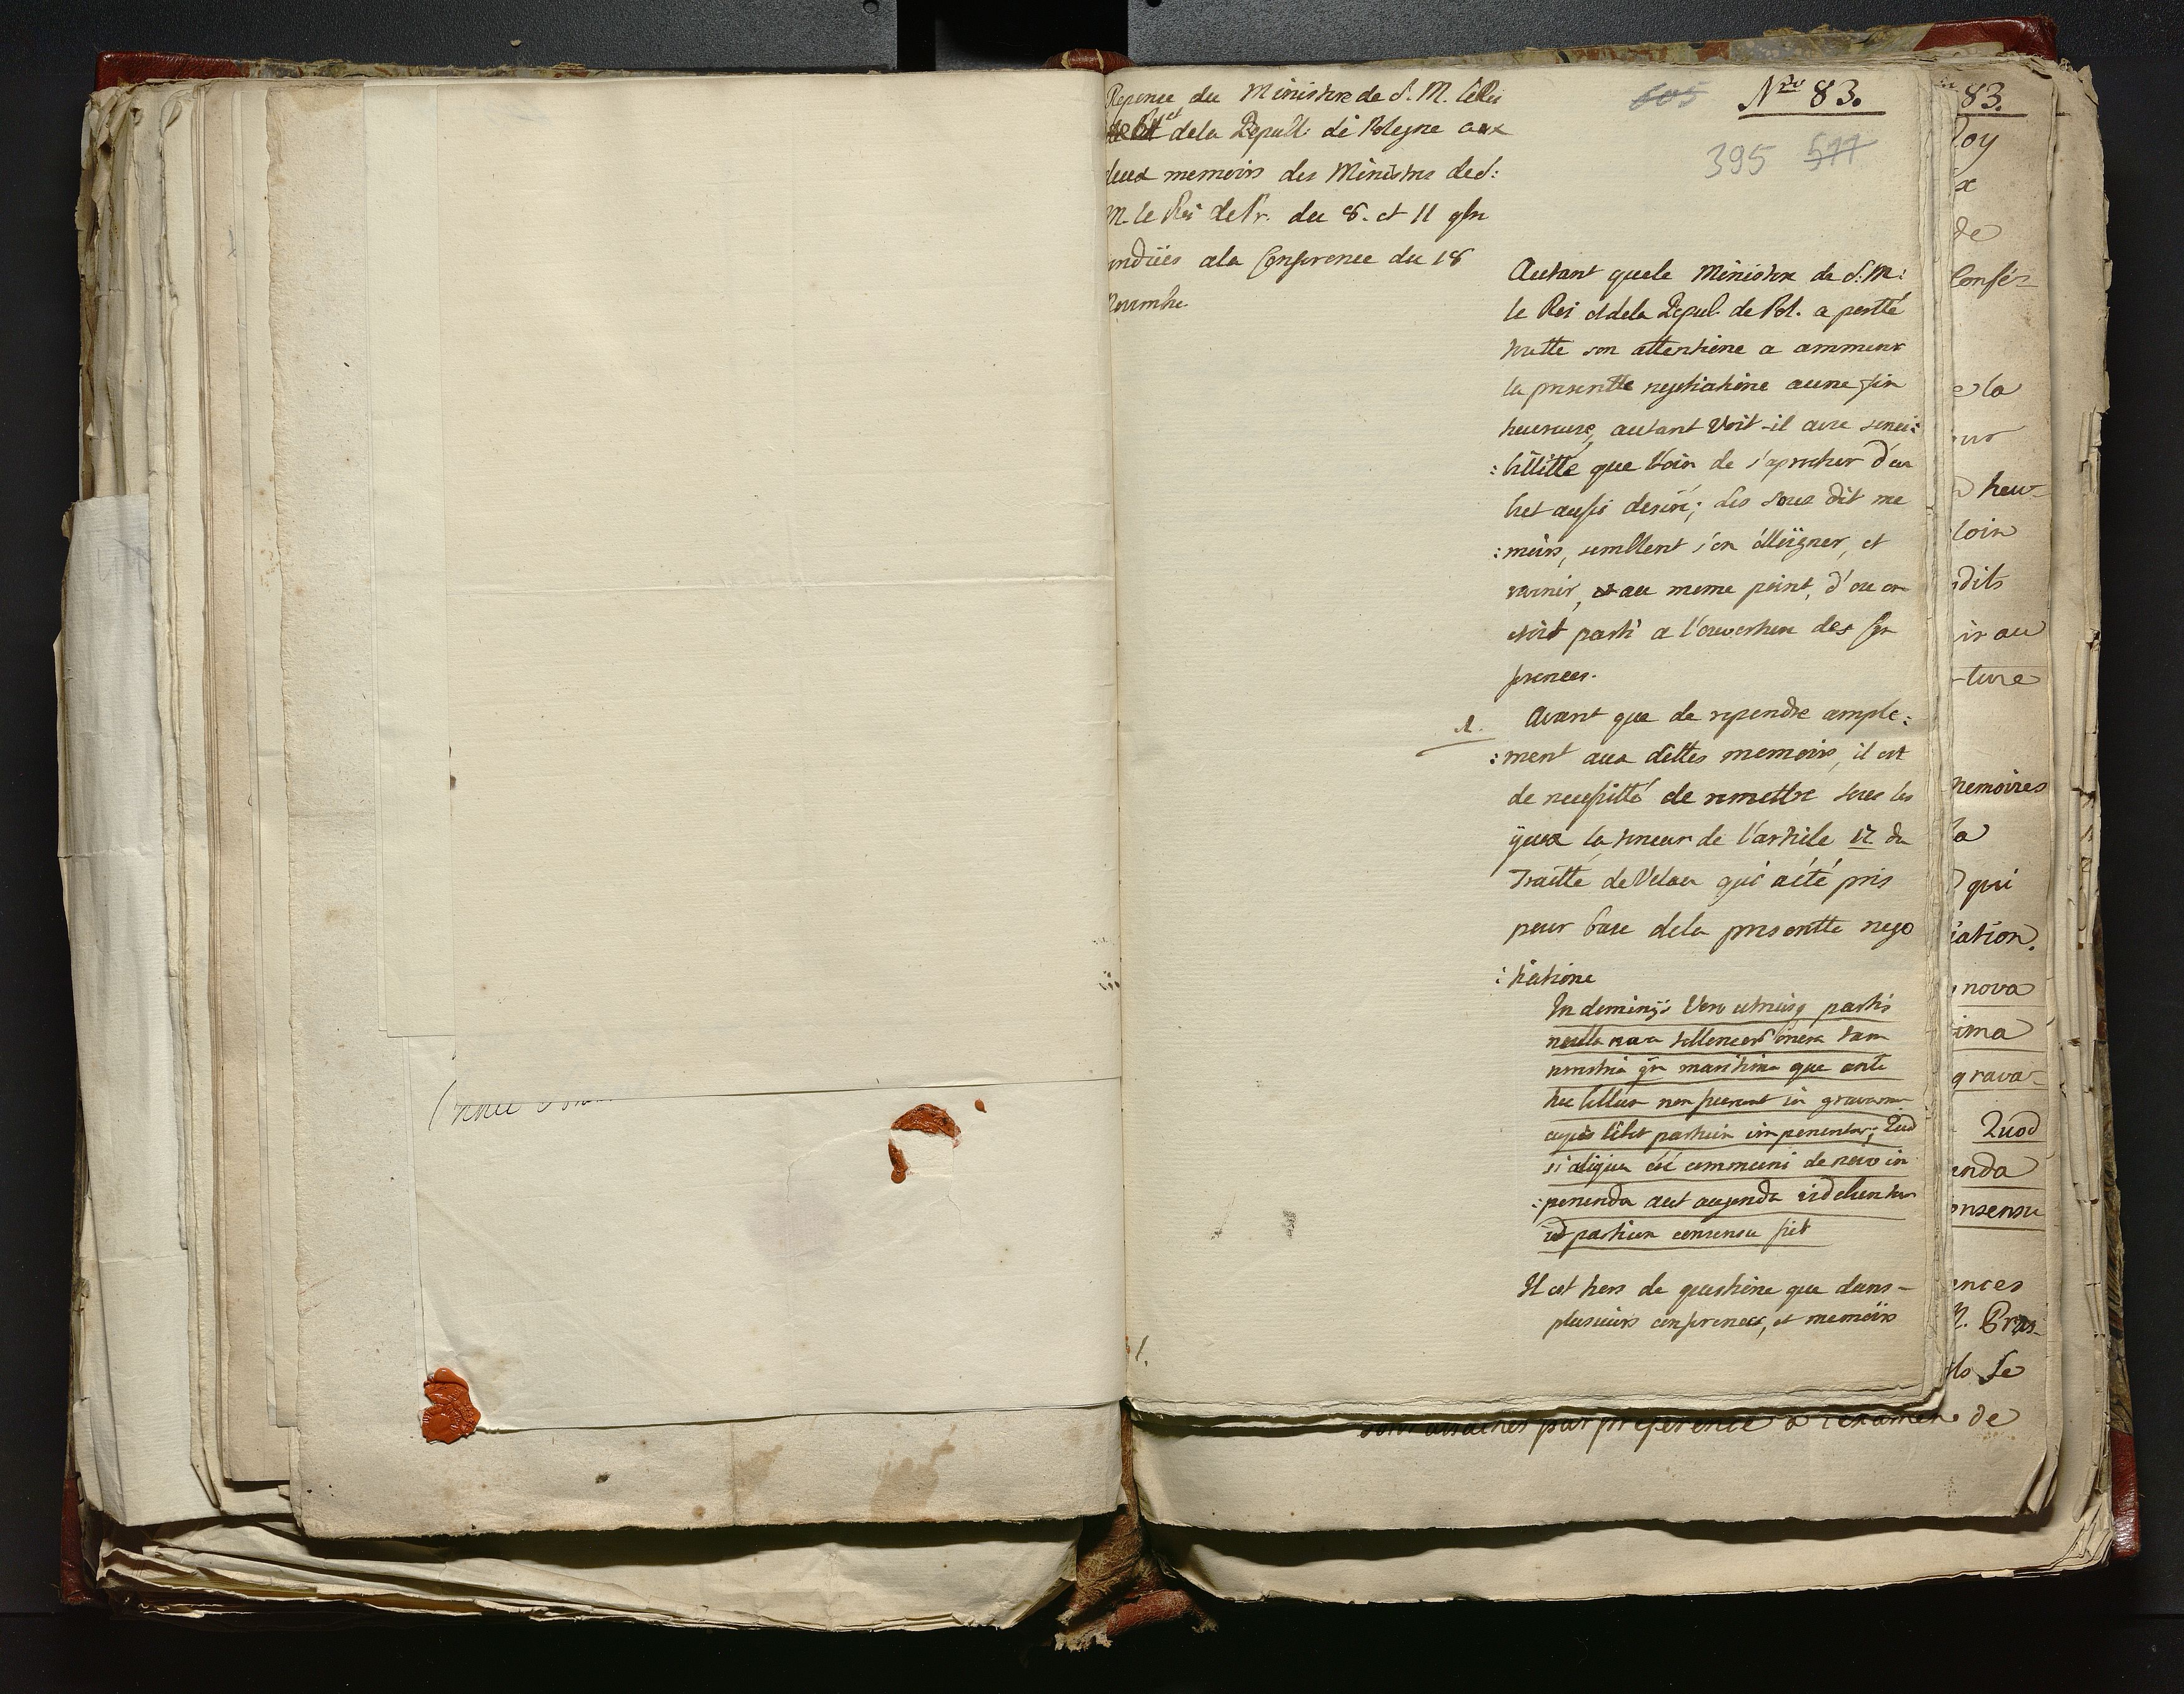 Reponse du Ministre de S. M. le Roi
et de la Republ: de Pologne aux
deux memoirs des Ministres de S:
M. le Roi de Pr. du 8. et 11 9br
rendües a la Conference du 18
Novembre
605 Nro 83.
395 577
Autant que le Ministre de S: M:
le Roi et de la Repub. de Pol. a portté
toutte son attentione a ammener
la presentte negotiatione a une fin
heureuse, autant voit-il avec sensi:
:billitté que loin de s'aprocher d'un
but aussi desiré; les sous dit me
:moirs, semblent s'en élloigner, et
revenir, au meme point, d'ou on
etoit parti a l'ouverture des Con
ferences.
1. Avant que de repondre ample:
:ment aux dittes memoirs, il est
de necessitté de remettre sous les
yeux la teneur de l'article 17 du
Traitté de Velau qui a été pris
pour base de la presentte nego
:tiatione
In dominijs Vero utriusq partis
nulla nova tellonea et onera tam
terrestria qm maritima que ante
hec bellum non fuerunt in gravamen
cujus libet partium imponentur; Quod
si aliqua ex communi de novo im
:ponenda aut augenda videbuntur
id partium consensu fiet
Il est hors de questione que dans
plusieurs conferences, et memoirs
1.
83.
Roy
x
de
Confé-
e la
heu-
loin
dits
ir au
-ture
memoires
la
qui
iation.
nova
ima
grava-
Quod
enda
onsensu
ences
M. Prus-
ils se
par preference a l'examen de